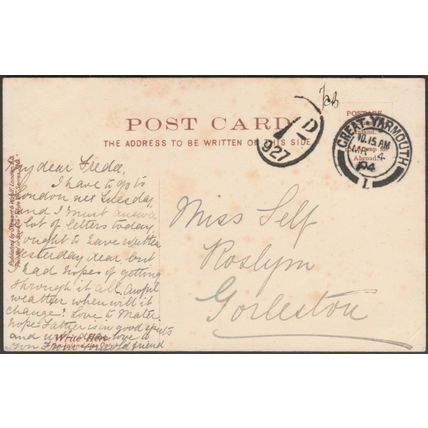 Feb
POST CARD
THE ADDRESS TO BE WRITTEN ON THIS SIDE
POSTAGE
Inland,
Abroad
GREAT YARMOUTH
10.15 AM
MR 4
04
1
D
1
927
My dear Freda,
I have to go to
London next Tuesday
and I must answer
a lot of letters today
ought to have written
yesterday dear but
had hopes of getting
through it all. Awful
weather when will it
change? Love to Mater
hope Father is in good spirits
and with dear love to
from old friend
Write Here
Miss Self
Roslyn
Gorleston